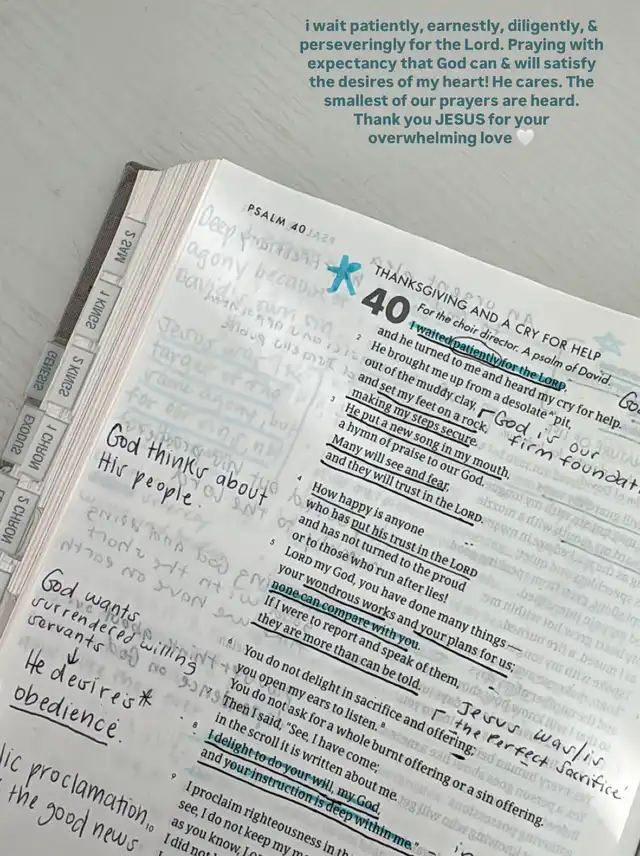 i wait patiently, earnestly, diligently, &
perseveringly for the Lord. Praying with
expectancy that God can & will satisfy
the desires of my heart! He cares. The
smallest of our prayers are heard.
Thank you JESUS for your
overwhelming love 🤍
PSALM 40
2 SAM
1 KINGS
2 KINGS
1 CHRON
2 CHRON
GENESIS
EXODUS
THANKSGIVING AND A CRY FOR HELP
40 For the choir director. A psalm of David.
I waited patiently for the LORD,
2 and he turned to me and heard my cry for help.
He brought me up from a desolate pit,
out of the muddy clay,
and set my feet on a rock,
making my steps secure.
God is our
firm foundat
3 He put a new song in my mouth,
a hymn of praise to our God.
Many will see and fear,
and they will trust in the LORD.
God thinks about
His people.
4 How happy is anyone
who has put his trust in the LORD
and has not turned to the proud
or to those who run after lies!
5 LORD my God, you have done many things —
your wondrous works and your plans for us;
none can compare with you.
If I were to report and speak of them,
they are more than can be told.
God wants
surrendered willing
servants
↓
He desires*
obedience.
6 You do not delight in sacrifice and offering;
you open my ears to listen.
You do not ask for a whole burnt offering or a sin offering.
Jesus was/is
the perfect sacrifice
Then I said, "See, I have come;
in the scroll it is written about me.
8 I delight to do your will, my God,
and your instruction is deep within me."
lic proclamation
the good news
9 I proclaim righteousness in th
see, I do not keep my m
10 as you know, Lo
I did not